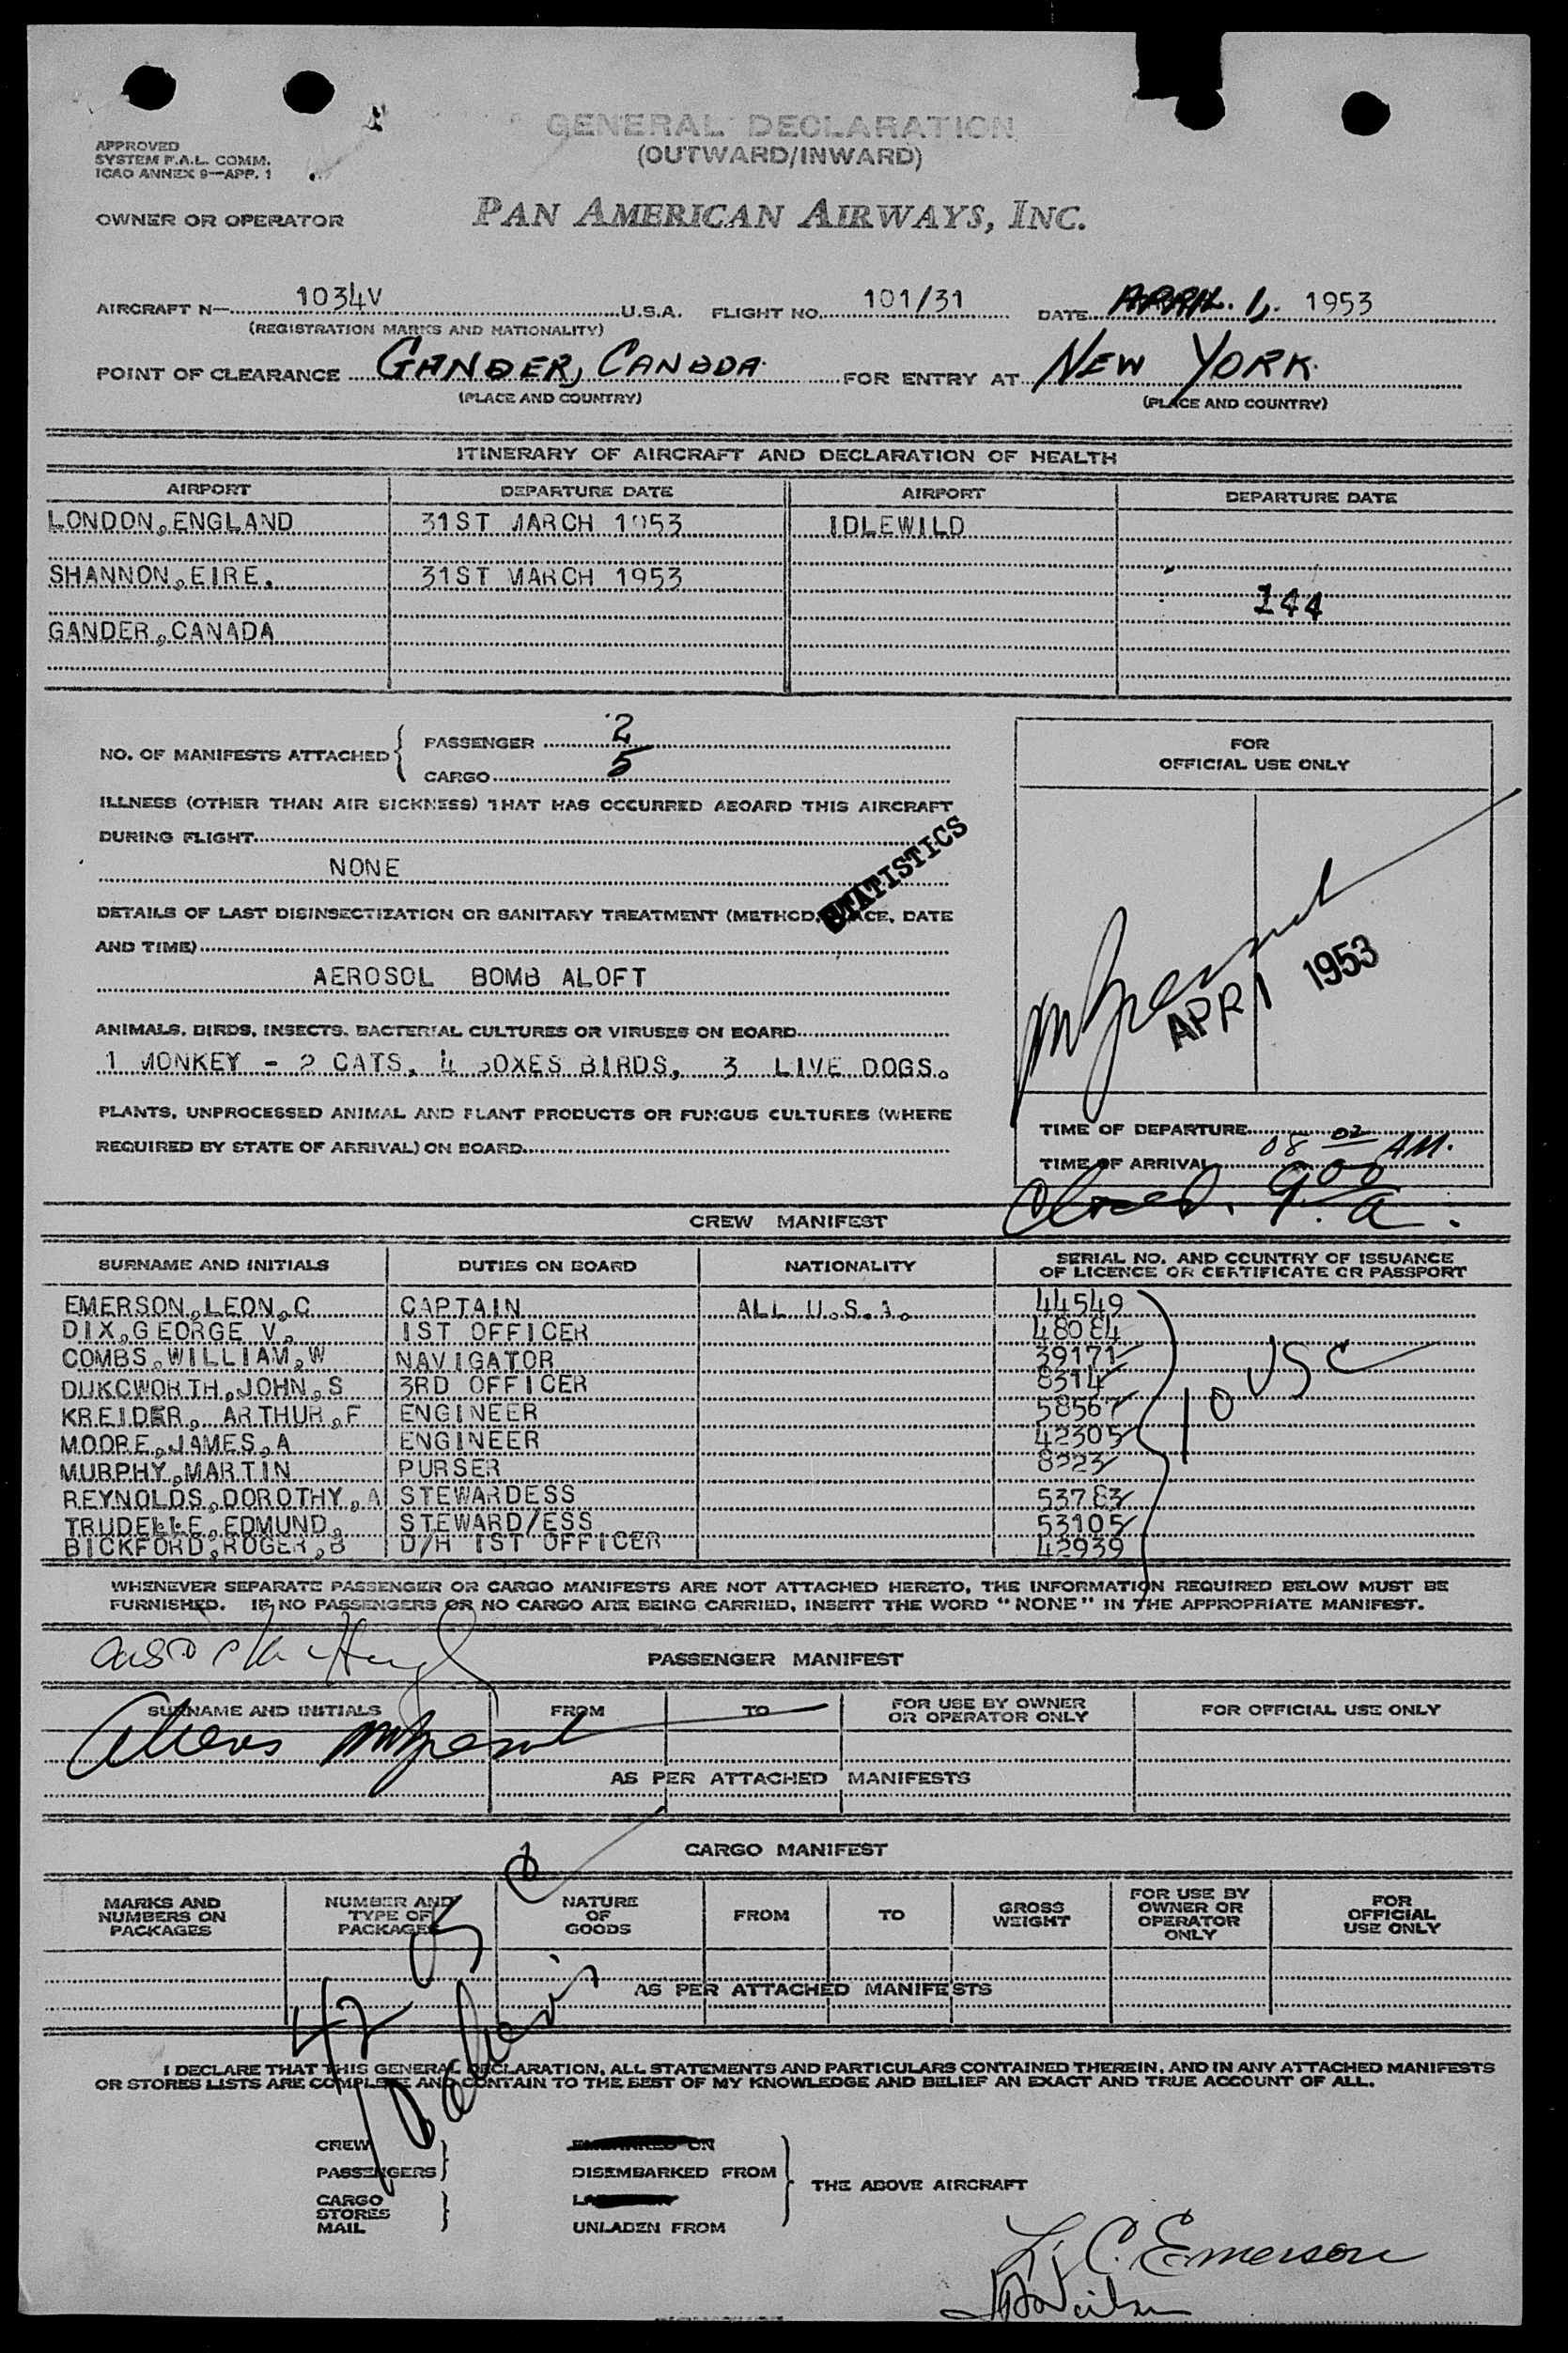 GENERAL DECLARATION
(OUTWARD/INWARD)
APPROVED
SYSTEM F.A.L. COMM.
ICAO ANNEX 9—APP. 1
OWNER OR OPERATOR PAN AMERICAN AIRWAYS, INC.
AIRCRAFT N— 1034V U.S.A. FLIGHT NO. 101/31 DATE APRIL. 1, 1953
(REGISTRATION MARKS AND NATIONALITY)
POINT OF CLEARANCE GANDER, CANADA FOR ENTRY AT NEW YORK.
(PLACE AND COUNTRY) (PLACE AND COUNTRY)
ITINERARY OF AIRCRAFT AND DECLARATION OF HEALTH
AIRPORT DEPARTURE DATE AIRPORT DEPARTURE DATE
LONDON,ENGLAND 31ST MARCH 1953 IDLEWILD
SHANNON,EIRE. 31ST MARCH 1953
144
GANDER,CANADA
NO. OF MANIFESTS ATTACHED { PASSENGER 2
CARGO 5
FOR
OFFICIAL USE ONLY
ILLNESS (OTHER THAN AIR SICKNESS) THAT HAS OCCURRED ABOARD THIS AIRCRAFT
DURING FLIGHT
NONE
STATISTICS
DETAILS OF LAST DISINSECTIZATION OR SANITARY TREATMENT (METHOD, PLACE, DATE
AND TIME)
AEROSOL BOMB ALOFT
APR 1 1953
ANIMALS, BIRDS, INSECTS, BACTERIAL CULTURES OR VIRUSES ON BOARD
1 MONKEY - 2 CATS, 4 BOXES BIRDS, 3 LIVE DOGS.
PLANTS, UNPROCESSED ANIMAL AND PLANT PRODUCTS OR FUNGUS CULTURES (WHERE
REQUIRED BY STATE OF ARRIVAL) ON BOARD
TIME OF DEPARTURE
TIME OF ARRIVAL 08 02 AM.
Closed. 9 00 a.
CREW MANIFEST
SURNAME AND INITIALS DUTIES ON BOARD NATIONALITY SERIAL NO. AND COUNTRY OF ISSUANCE
OF LICENCE OR CERTIFICATE OR PASSPORT
EMERSON,LEON,C CAPTAIN ALL U.S.A. 44549
DIX,GEORGE V, 1ST OFFICER 48084
COMBS,WILLIAM,W NAVIGATOR 39171
DUKCWORTH,JOHN,S 3RD OFFICER 8314
KREIDER, ARTHUR,F ENGINEER 58567
MOORE,JAMES,A ENGINEER 42305
MURPHY,MARTIN PURSER 8223
REYNOLDS,DOROTHY,A STEWARDESS 53783
TRUDELLE,EDMUND, STEWARD/ESS 53105
BICKFORD,ROGER,B D/H 1ST OFFICER 42939
10 USC
WHENEVER SEPARATE PASSENGER OR CARGO MANIFESTS ARE NOT ATTACHED HERETO, THE INFORMATION REQUIRED BELOW MUST BE
FURNISHED. IF NO PASSENGERS OR NO CARGO ARE BEING CARRIED, INSERT THE WORD "NONE" IN THE APPROPRIATE MANIFEST.
PASSENGER MANIFEST
SURNAME AND INITIALS FROM TO FOR USE BY OWNER
OR OPERATOR ONLY FOR OFFICIAL USE ONLY
AS PER ATTACHED MANIFESTS
CARGO MANIFEST
MARKS AND
NUMBERS ON
PACKAGES NUMBER AND
TYPE OF
PACKAGES NATURE
OF
GOODS FROM TO GROSS
WEIGHT FOR USE BY
OWNER OR
OPERATOR
ONLY FOR
OFFICIAL
USE ONLY
AS PER ATTACHED MANIFESTS
I DECLARE THAT THIS GENERAL DECLARATION, ALL STATEMENTS AND PARTICULARS CONTAINED THEREIN, AND IN ANY ATTACHED MANIFESTS
OR STORES LISTS ARE COMPLETE AND CONTAIN TO THE BEST OF MY KNOWLEDGE AND BELIEF AN EXACT AND TRUE ACCOUNT OF ALL.
CREW
PASSENGERS DISEMBARKED FROM THE ABOVE AIRCRAFT
CARGO
STORES
MAIL UNLADEN FROM
L. C. Emerson